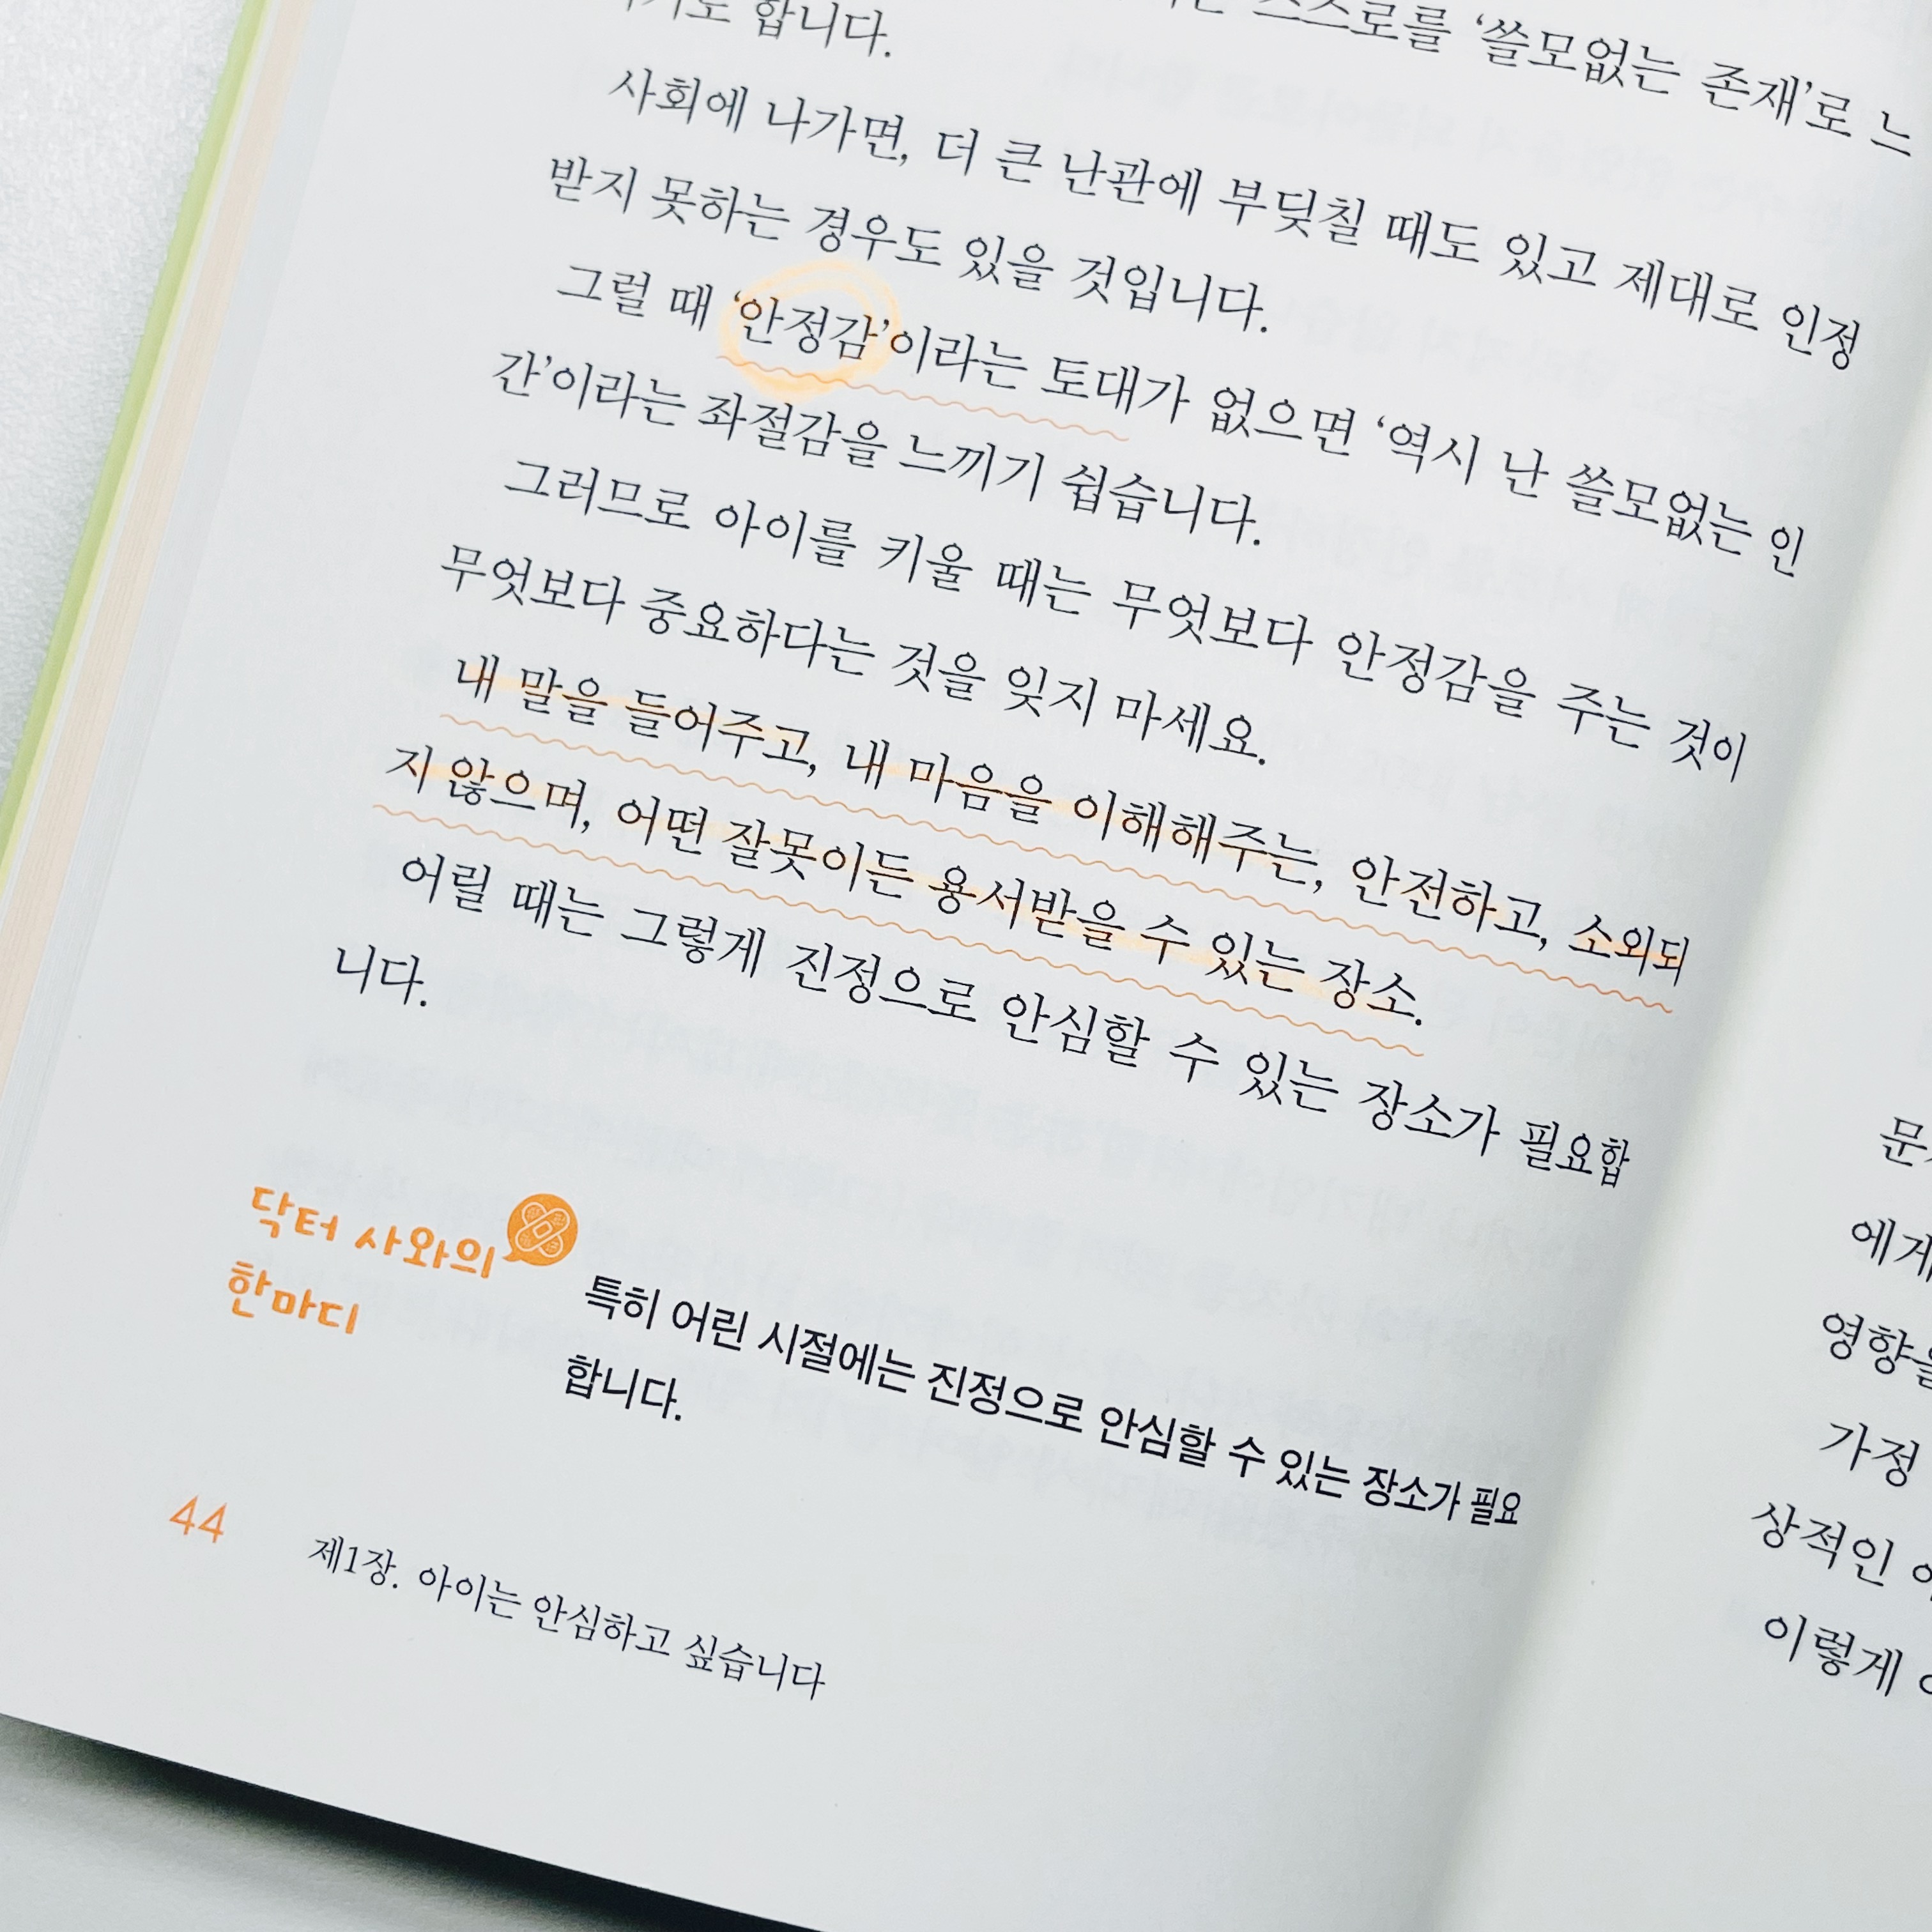 스스로를 ‘쓸모없는 존재’로 느
합니다.
사회에 나가면, 더 큰 난관에 부딪칠 때도 있고 제대로 인정
받지 못하는 경우도 있을 것입니다.
그럴 때 ‘안정감’이라는 토대가 없으면 ‘역시 난 쓸모없는 인
간’이라는 좌절감을 느끼기 쉽습니다.
그러므로 아이를 키울 때는 무엇보다 안정감을 주는 것이
무엇보다 중요하다는 것을 잊지 마세요.
내 말을 들어주고, 내 마음을 이해해주는, 안전하고, 소외되
지 않으며, 어떤 잘못이든 용서받을 수 있는 장소.
어릴 때는 그렇게 진정으로 안심할 수 있는 장소가 필요합
니다.
닥터 사와의
한마디
특히 어린 시절에는 진정으로 안심할 수 있는 장소가 필요
합니다.
44 제1장. 아이는 안심하고 싶습니다
에게
영향을
가정
상적인
이렇게